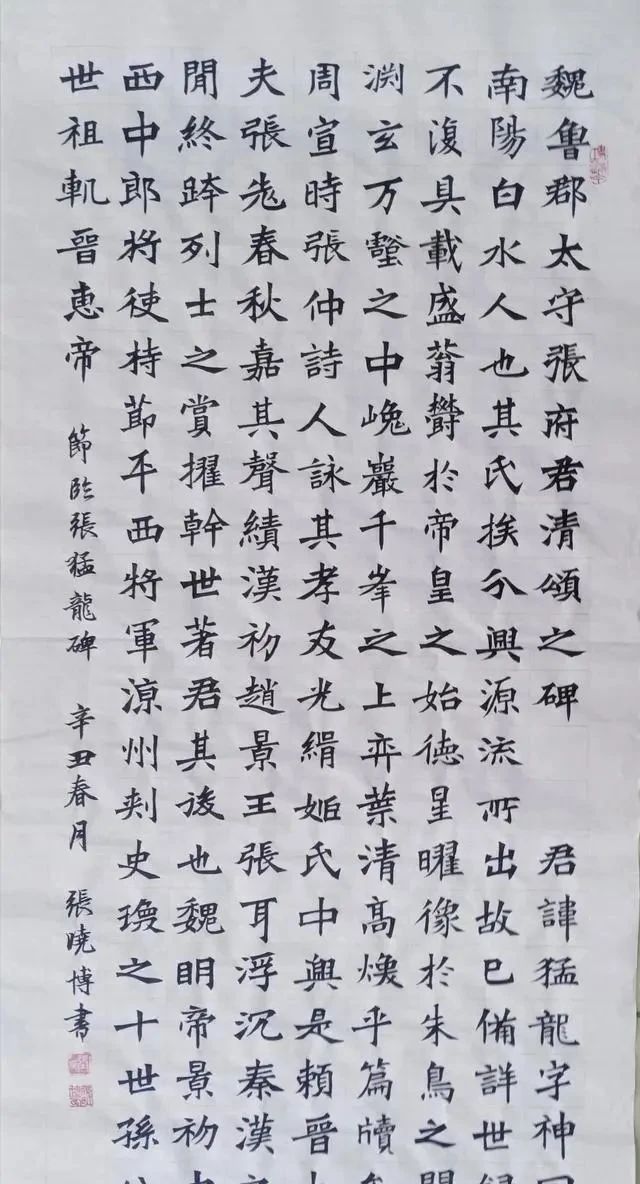 魏魯郡太守張府君清頌之碑 君諱猛龍字神
南陽白水人也其氏挨分興源流所出故已備詳世
不復具載盛蓊欝於帝皇之始德星曜像於朱鳥之
渊玄万壑之中巉巖千峯之上弈葉清高煥乎篇牘
周宣時張仲詩人詠其孝友光緝姬氏中興是賴晉
夫張老春秋嘉其聲績漢初趙景王張耳浮沉秦漢
聞終跨列士之賞擢幹世著君其後也魏明帝景初
西中郎将使持莭平西将軍涼州刾史瓊之十世孫
世祖軌晉惠帝
節臨張猛龍碑 辛丑春月 張曉博書